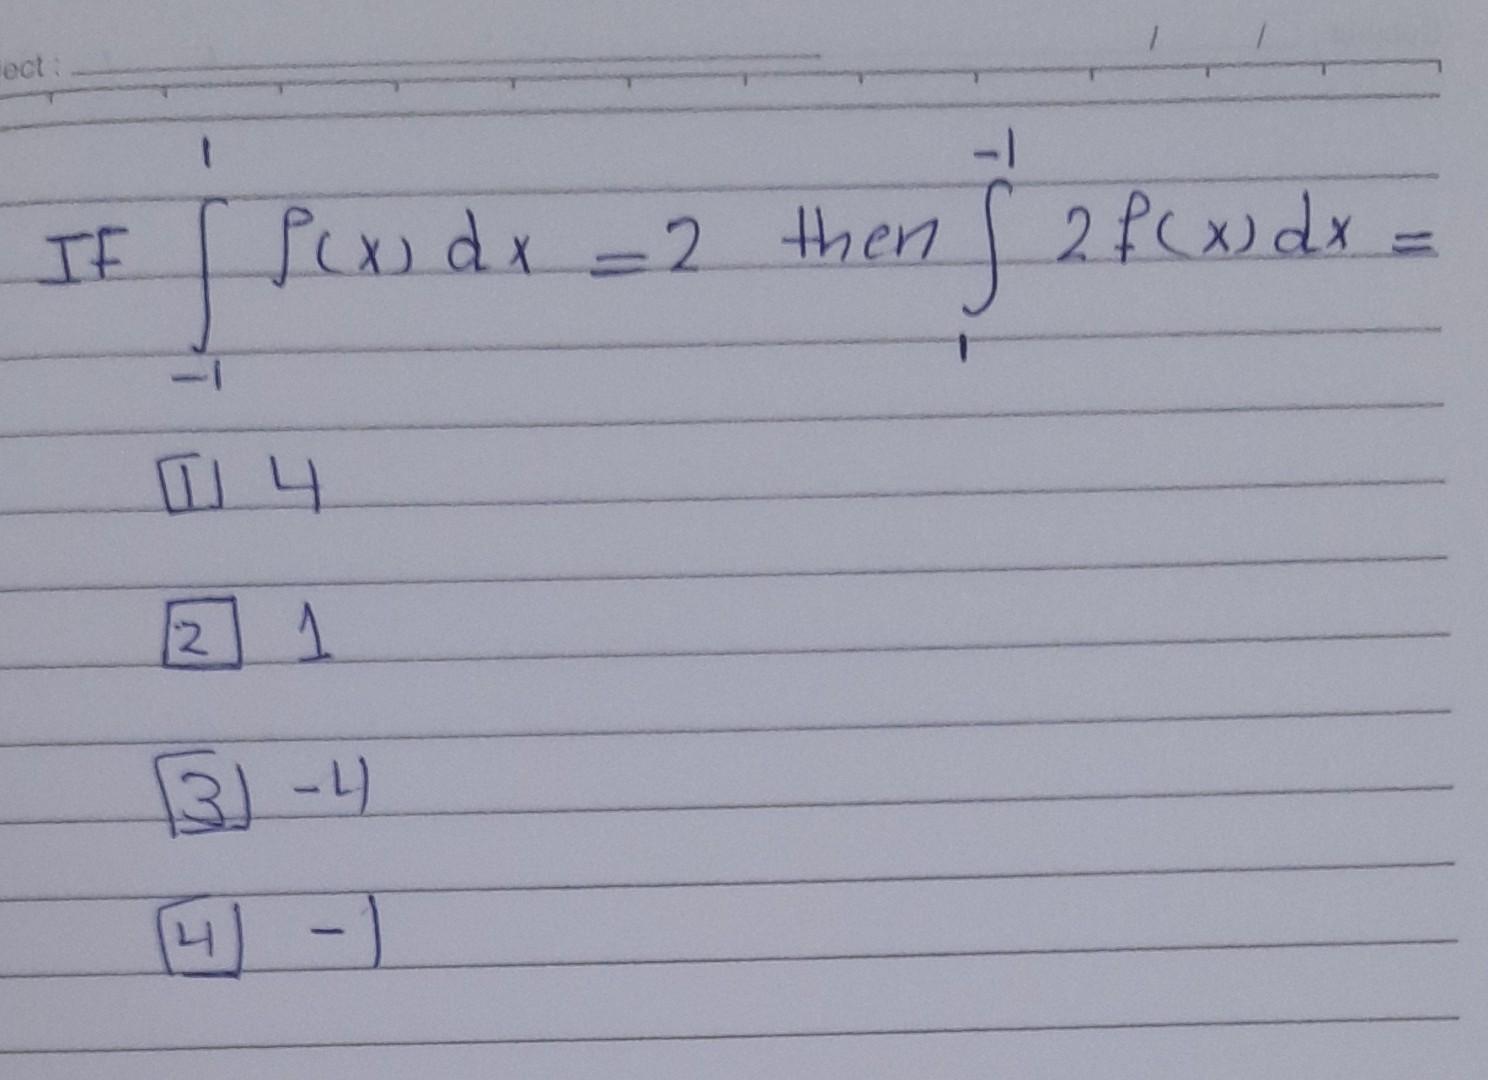 ect :
/ /
If ∫_{-1}^{1} f(x) dx = 2 then ∫_{1}^{-1} 2 f(x) dx =
1 4
2 1
3 -4
4 -1